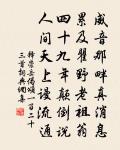 威音那畔真消息
累及瞿曇老祖翁
四十九年顛倒説
人間天上謾流通
釋崇岳偈頌一百二十
三首詞典網集